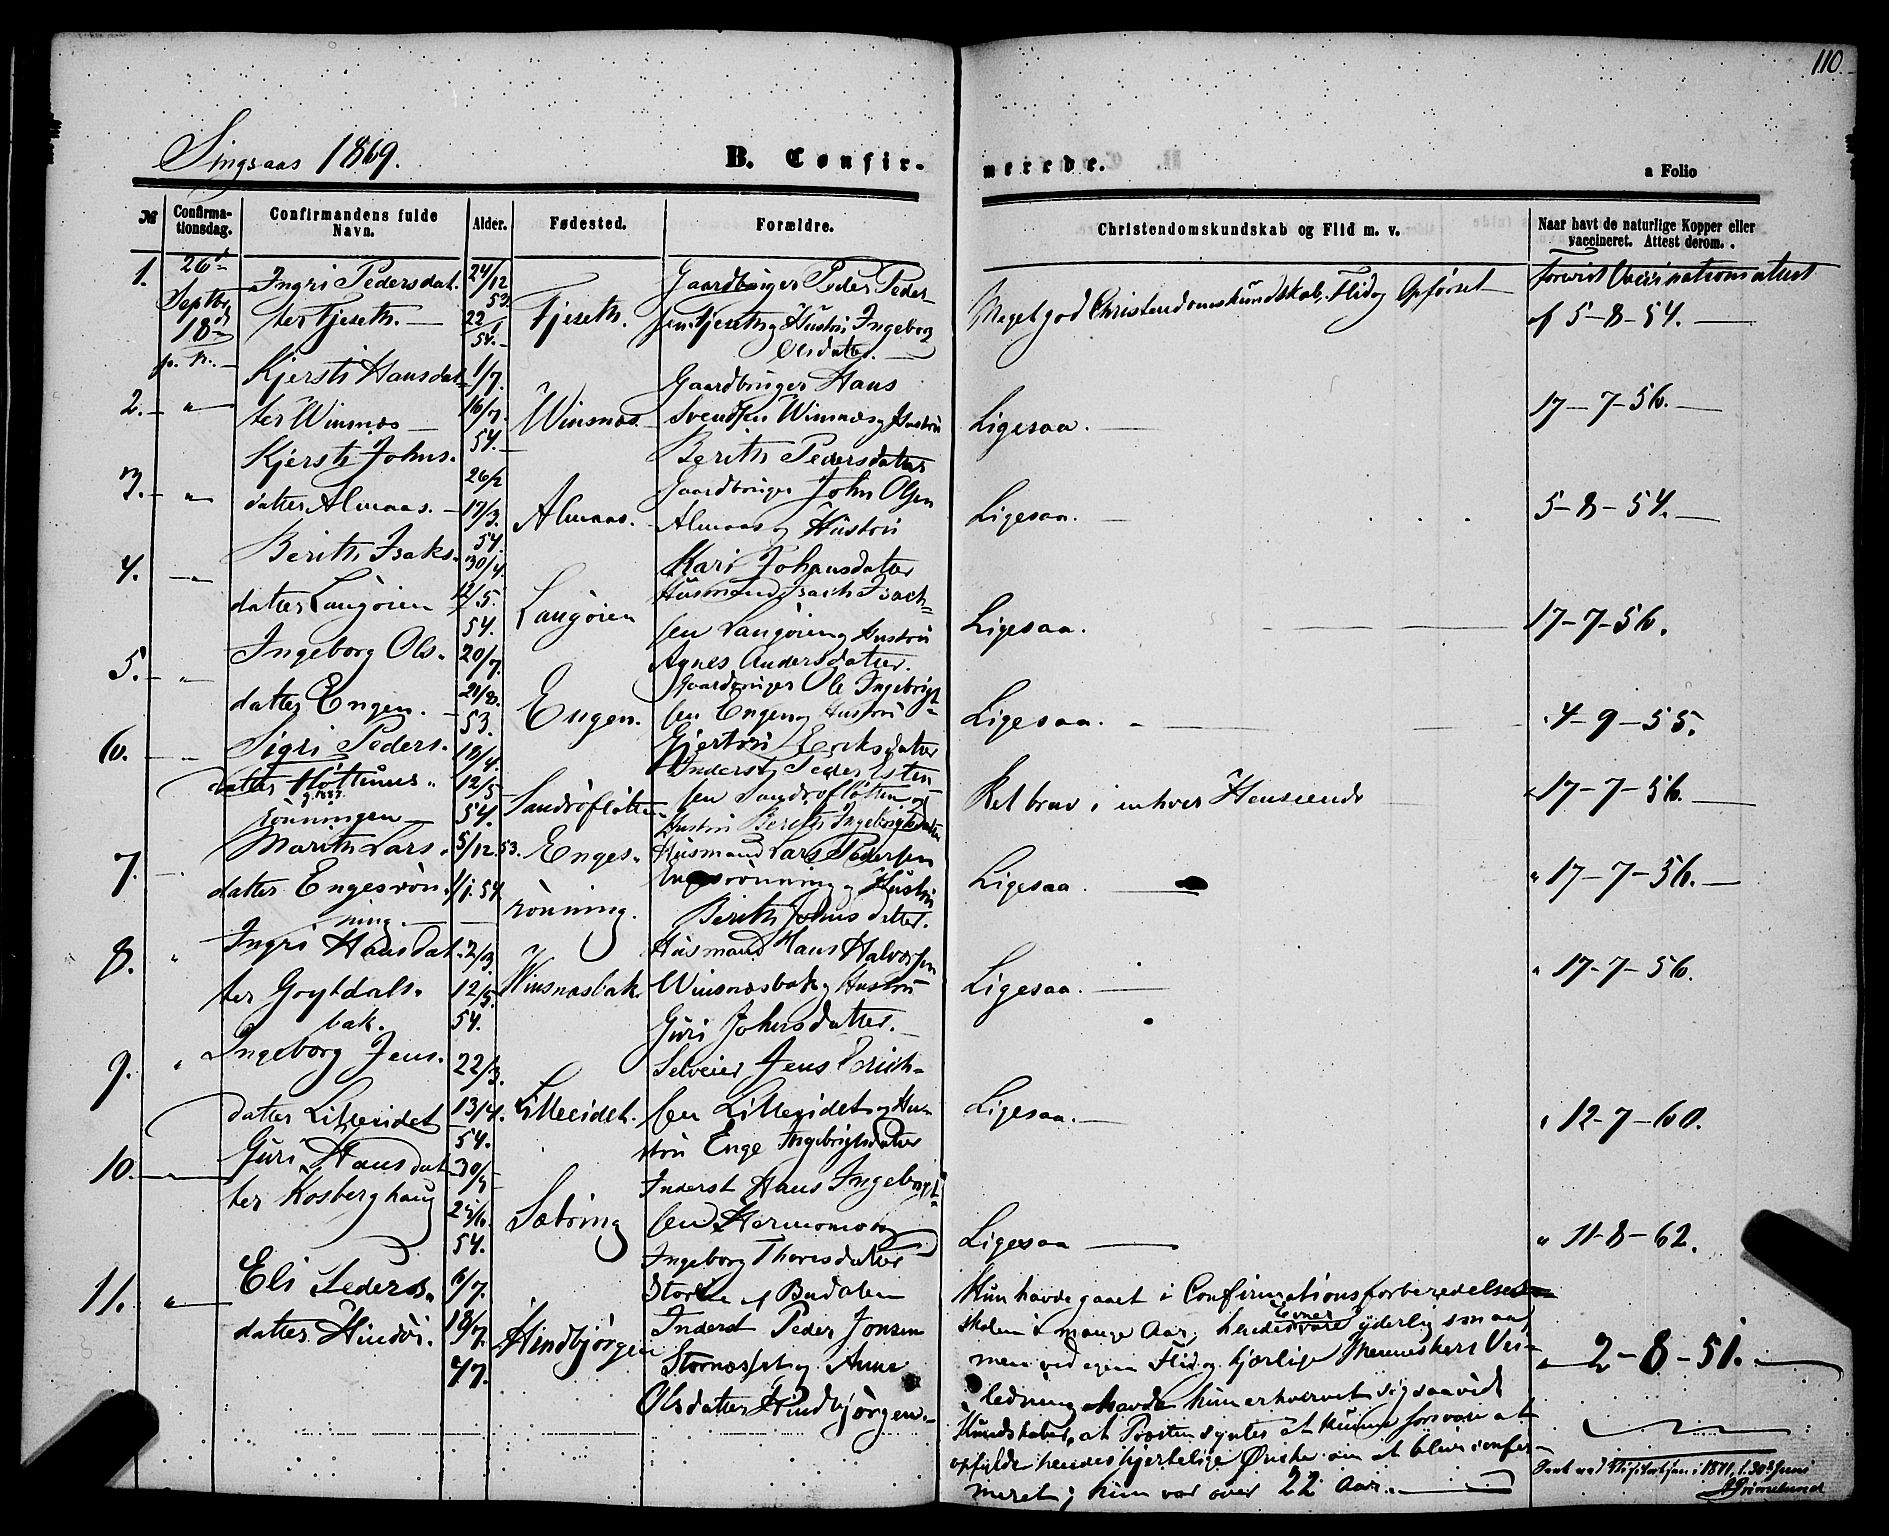 110.
Singsaas 1869.
B. Confir-
merede.
a Folio
№
Confirma-
tionsdag.
Confirmandens fulde
Navn.
Alder.
Fødested.
Forældre.
Christendomskundskab og Flid m. v.
Naar havt de naturlige Kopper eller
vaccineret. Attest derom.
1.
26
Septbr
18
p. Tr.
Ingri Pedersdat-
ter Fjeseth.
24/12
53.
22/1
54.
Fjeseth.
Gaardbruger Peder Peder-
sen Fjeseth og Hustru Ingeborg
Olsdatter.
Meget god Christendomskundskab, Flid og Opførsel
Forevist Vaccinationsattest
af 5-8-54.
2. "
Kjersti Hansdat-
ter Winsnes
1/7.
16/7.
54.
Winsnæs.
Gaardbruger Hans
Svendsen Winsnæs og Hustru
Berith Pedersdatter
Ligesaa.
17-7-56.
3. "
Kjersti Johns-
datter Almaas.
26/2
17/3.
54.
Almaas.
Gaardbruger John Olsen
Almaas og Hustru
Kari Johansdatter
Ligesaa.
5-8-54.
4. "
Berith Isaks-
datter Langøien
30/4.
12/5.
54.
Langøien
Husmand Isach Isach-
sen Langøien og Hustru
Agnes Andersdatter.
Ligesaa.
17-7-56.
5. "
Ingeborg Ols-
datter Engen.
20/7.
21/8.
53.
Engen.
Gaardbruger Ole Ingebrigt-
sen Engen og Hustru
Gjertru Eriksdatter
Ligesaa.
4-9-55.
6. "
Sigri Peders-
datter
rönningen
18/4.
12/5
54.
Sandrøfløtten
Inderst Peder Esten
sen Sandrøfløtten og
Hustru Berith Ingebrigtsdatter
Ret brav i enhver Henseende
" 17-7-56.
7.
Marith Lars-
datter Engesrön-
ning.
5/12 53.
1/1. 54.
Enges-
rönning.
Husmand Lars Pedersen
Engesrönning og Hustru
Berith Johnsdatter.
Ligesaa.
" 17-7-56.
8. "
Ingri Hansdat-
ter Goytdals-
bak.
2/3.
12/5.
54.
Winsnæsbak.
Husmand Hans Halvorsen
Winsnæsbak og Hustru
Guri Johnsdatter.
Ligesaa.
" 17-7-56.
9. "
Ingeborg Jens-
datter Lilleeidet
22/3.
13/4.
54.
Lilleeidet.
Selveier Jens Erich-
sen Lilleeidet og Hu-
stru Enge Ingebrigtsdatter
Ligesaa.
" 12-7-60.
10.
Guri Hansdat-
ter Kosberghaug
54.
Sæbring
Inderst Hans Ingebrigt-
sen Hermomo og
Ingeborg Thoresdatter
Storlien af Budalen
Ligesaa
" 11-8-62.
11. "
Eli Peders-
datter Hindbø.
6/7.
18/7.
47.
Hindbjørgen
Inderst Peder Jonsen
Stornæsset og Anne
Olsdatter Hindbjørgen.
Hun havde gaaet i Confirmationsforberedelses-
skolen i mange Aar; hendes Evner vare yderlig smaa,
men ved egen Flid og kjærlige Menneskers Vei-
ledning havde hun erhvervet sig saavidt
Kundskaber, at Præsten syntes at kunne forsvare at
opfylde hendes hjertelige Ønske om at blive confir-
meret; hun var over 22 Aar.
" 2-8-51.
Seet ved Visitatsen i 1871, d. 30 Juni
A Grimelund